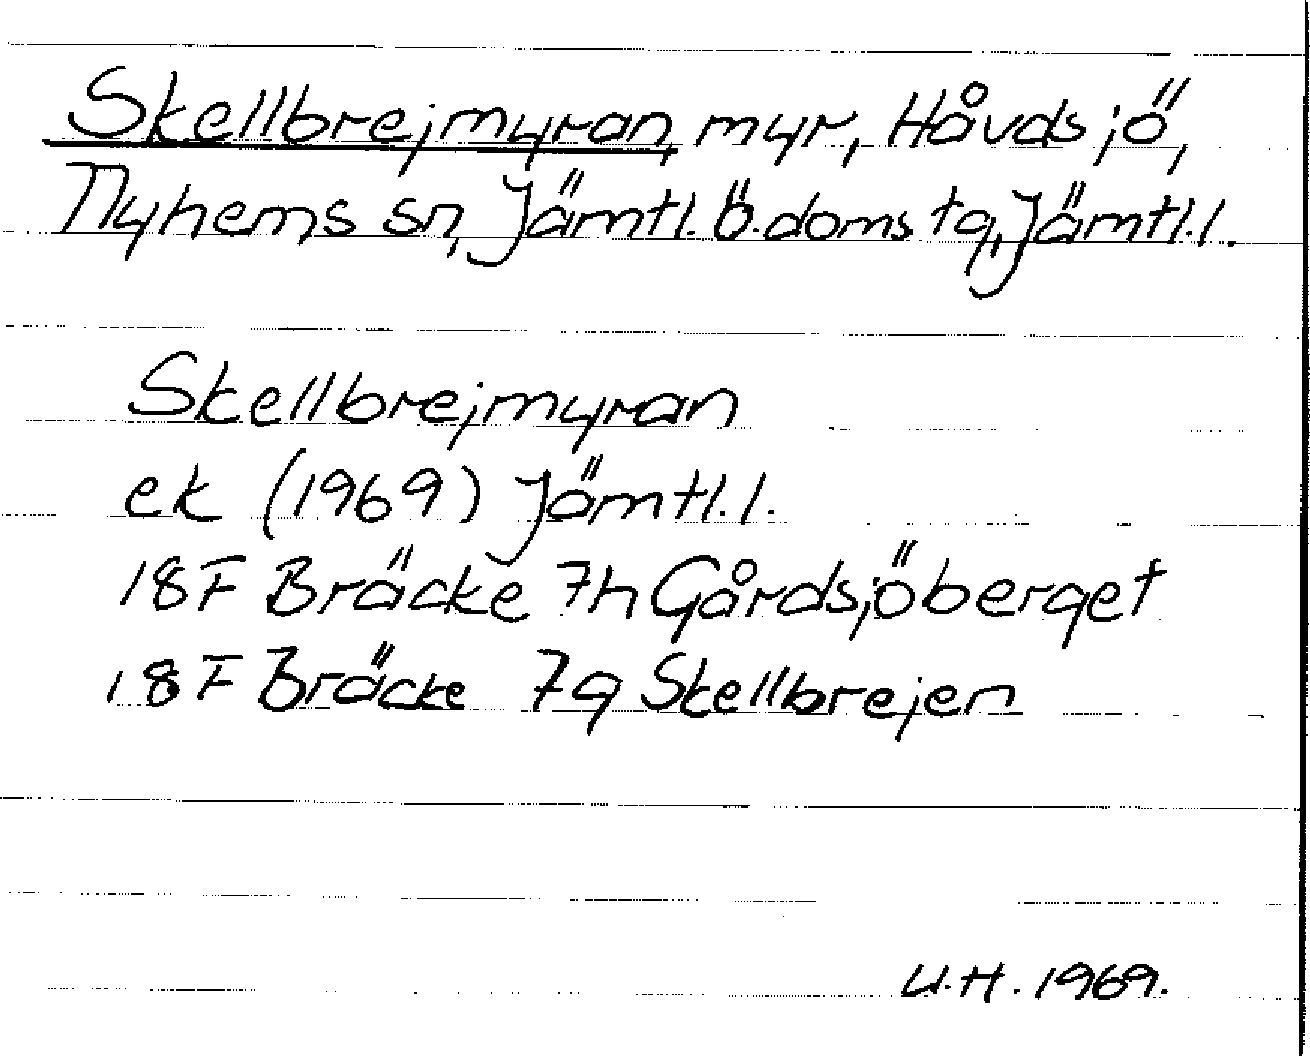 Skellbrejmyran, myr, Håvdsjö,
Nyhems sn, Jämtl. ö. doms tg, Jämtl.l.
Skellbrejmyran
ek (1969) Jämtl.l.
18F Bräcke 7h Gårdsjöberget
18F Bräcke 7g Skellbrejen
U.H. 1969.